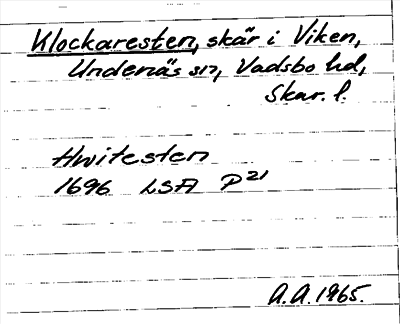 Klockaresten, skär i Viken,
Undenäs sn, Vadsbo hd,
Skar. l.
Hwitesten
1696 LSA P21
A.A. 1965.